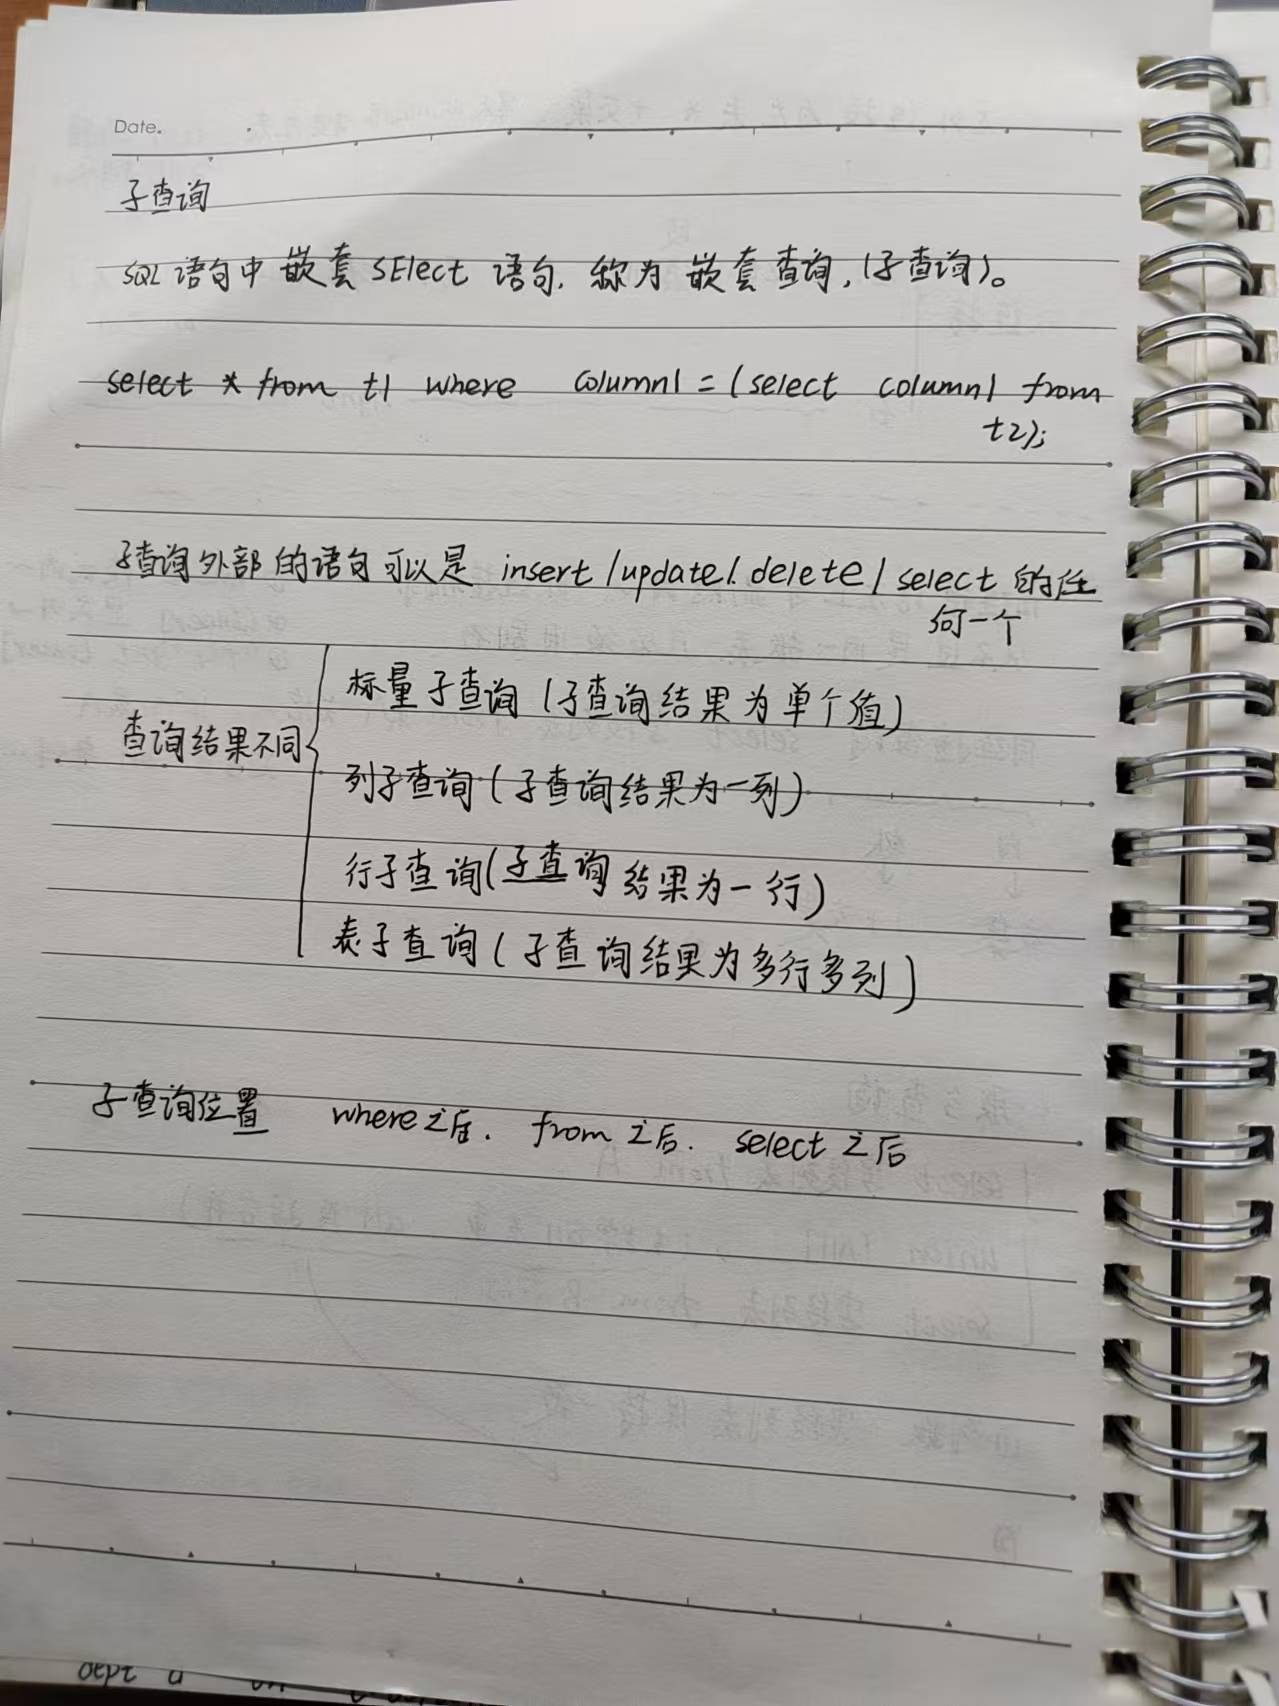 Date.
子查询
SQL 语句中嵌套 SElect 语句, 称为嵌套查询,(子查询)。
select * from t1 where column1 = (select column1 from
t2);
子查询外部的语句可以是 insert / update /. delete / select 的任
何一个
查询结果不同
标量子查询 (子查询结果为单个值)
列子查询 (子查询结果为一列)
行子查询(子查询结果为一行)
表子查询 (子查询结果为多行多列)
子查询位置 where之后. from之后. select 之后
dept